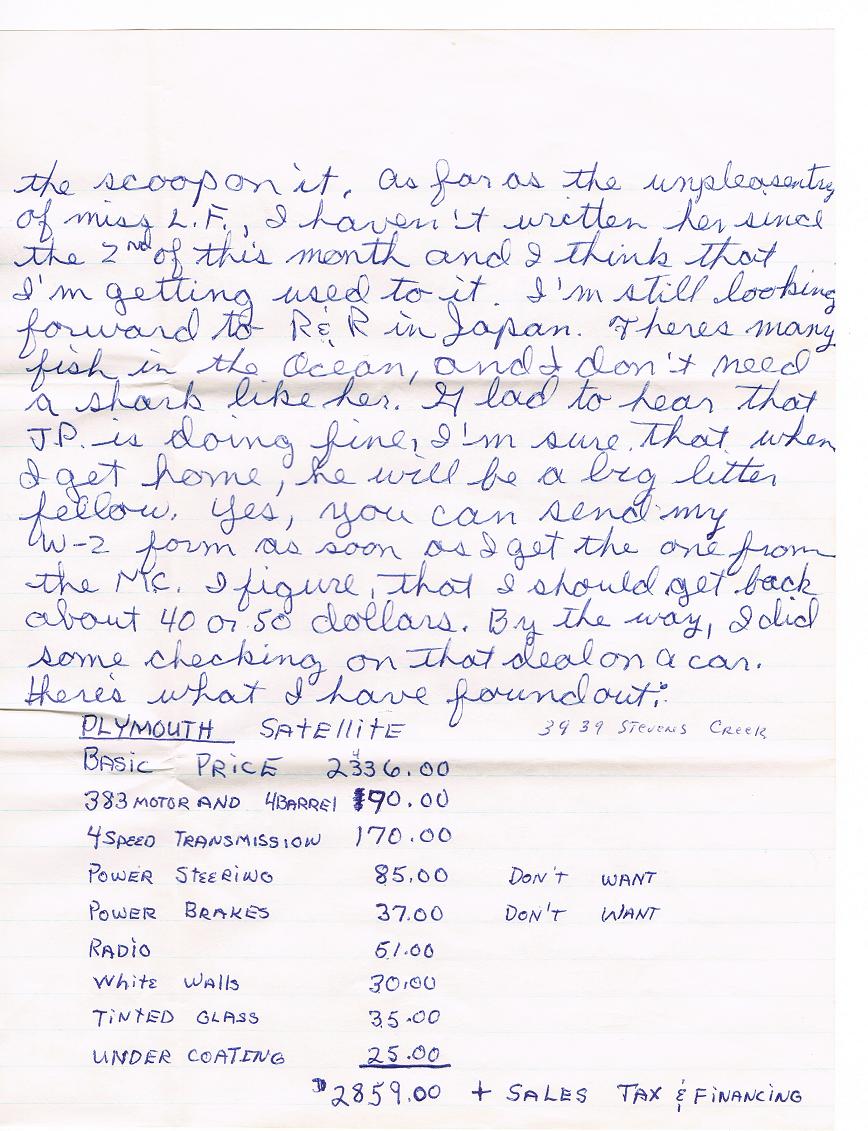 the scoop on it. As far as the unpleasentry
of miss L.F., I haven't written her since
the 2nd of this month and I think that
I'm getting used to it. I'm still looking
forward to R & R in Japan. Theres many
fish in the Ocean, and I don't need
a shark like her. Glad to hear that
J.P. is doing fine, I'm sure that when
I get home, he will be a big litter
fellow. Yes, you can send my
W-2 form as soon as I get the one from
the MC. I figure, that I should get back
about 40 or 50 dollars. By the way, I did
some checking on that deal on a car.
Here's what I have found out:
PLYMOUTH SATELLITE 3939 STEVENS CREEK
BASIC PRICE 2336.00
383 MOTOR AND 4 BARREL 90.00
4 SPEED TRANSMISSION 170.00
POWER STEERING 85.00 DON'T WANT
POWER BRAKES 37.00 DON'T WANT
RADIO 51.00
WHITE WALLS 30.00
TINTED GLASS 35.00
UNDER COATING 25.00
$2859.00 + SALES TAX & FINANCING